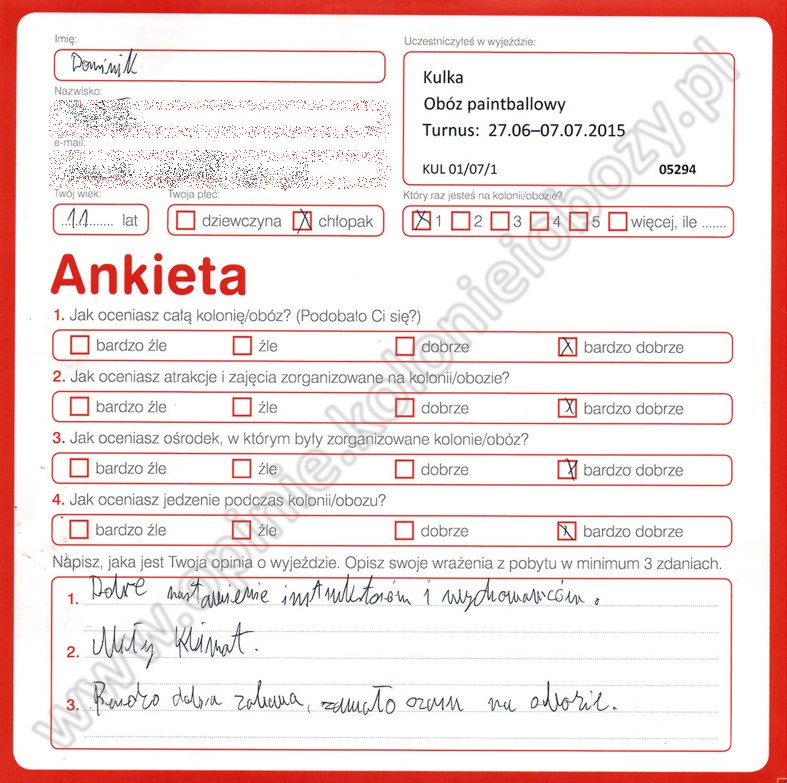 Imię:
Dominik
Uczestniczyłeś w wyjeździe:
Kulka
Obóz paintballowy
Turnus: 27.06–07.07.2015
KUL 01/07/1 05294
Nazwisko:
e-mail:
Twój wiek:
11 lat
Twoja płeć:
dziewczyna X chłopak
Który raz jesteś na kolonii/obozie?
X 1 2 3 4 5 więcej, ile .......
Ankieta
1. Jak oceniasz całą kolonię/obóz? (Podobało Ci się?)
bardzo źle źle dobrze X bardzo dobrze
2. Jak oceniasz atrakcje i zajęcia zorganizowane na kolonii/obozie?
bardzo źle źle dobrze X bardzo dobrze
3. Jak oceniasz ośrodek, w którym były zorganizowane kolonie/obóz?
bardzo źle źle dobrze X bardzo dobrze
4. Jak oceniasz jedzenie podczas kolonii/obozu?
bardzo źle źle dobrze X bardzo dobrze
Napisz, jaka jest Twoja opinia o wyjeździe. Opisz swoje wrażenia z pobytu w minimum 3 zdaniach.
1. Dobre nastawienie instruktorów i wychowawców.
2. Miły klimat.
3. Bardzo dobra zabawa, zamało czasu na obozie.
www.opinie.kolonieiobozy.pl